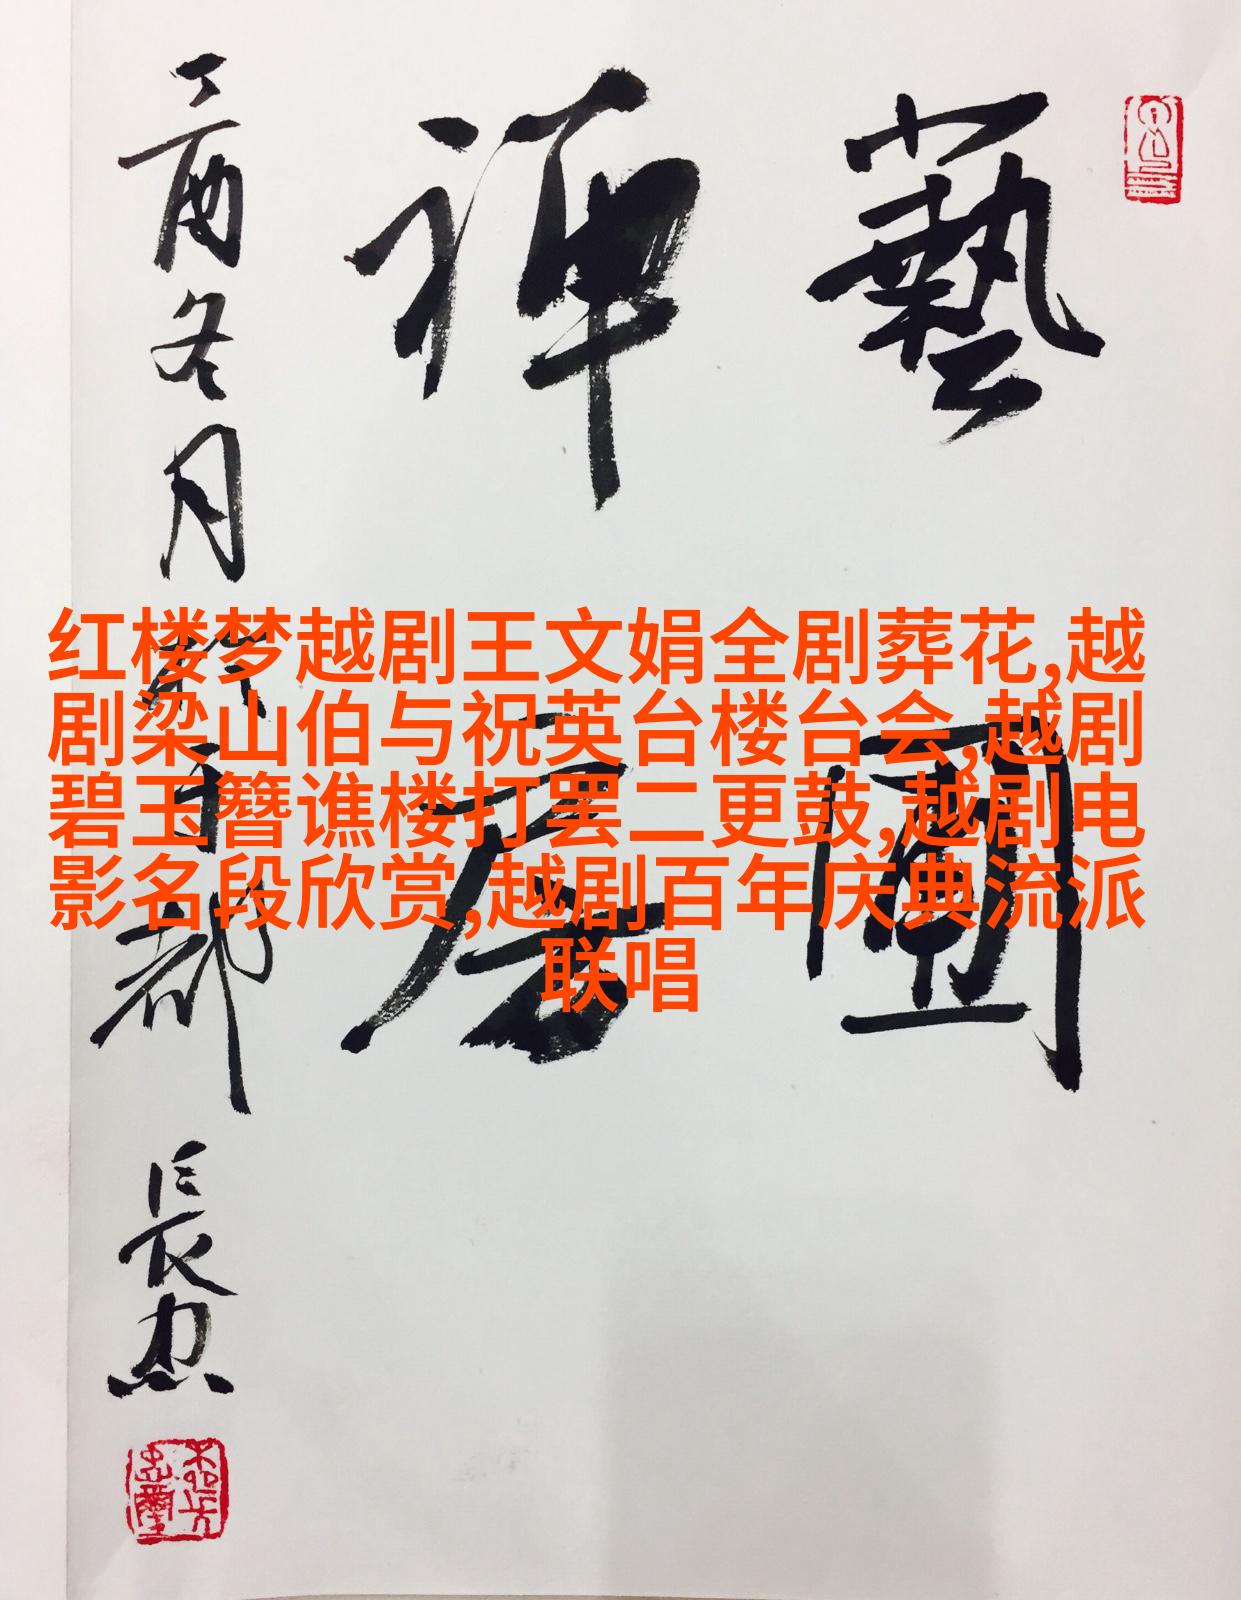 红楼梦越剧王文娟全剧葬花,越
剧梁山伯与祝英台楼台会,越剧
碧玉簪谯楼打罢二更鼓,越剧电
影名段欣赏,越剧百年庆典流派
联唱
藝
禪居
丁酉冬月於都長